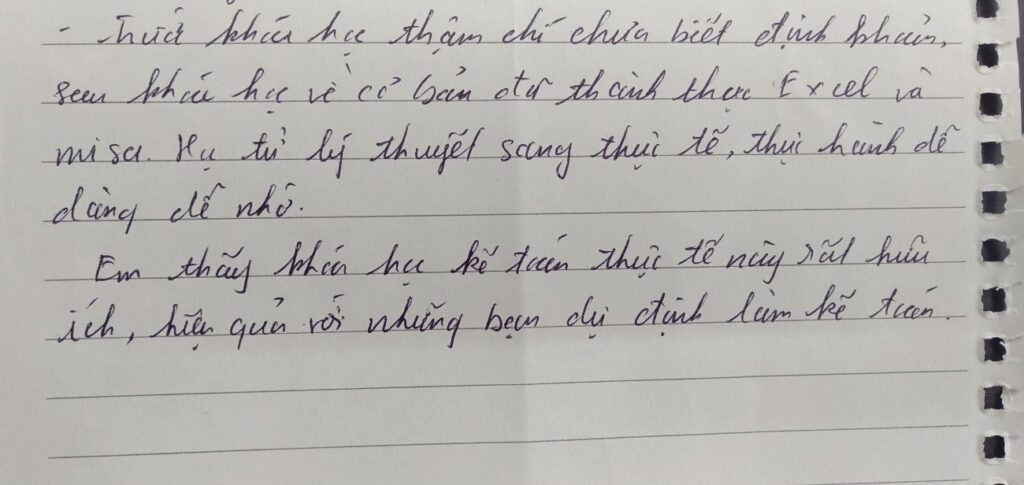 - Trước khóa học thậm chí chưa biết định khoản,
sau khóa học về cơ bản đã thành thạo Excel và
misa. Học từ lý thuyết sang thực tế, thực hành dễ
dàng dễ nhớ.
Em thấy khóa học kế toán thực tế này rất hữu
ích, hiệu quả với những bạn dự định làm kế toán.